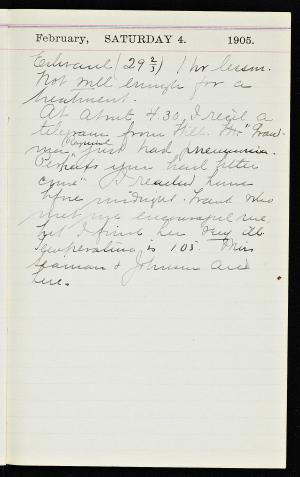 February, SATURDAY 4. 1905.
(29 2/3) 1 hr lesson.
Not well enough for a
treatment.
At about 4.30, I rec'd a
telegram from Hill. "Grand-
ma just had pneumonia.
Perhaps you had better
come" I reached home
before midnight. Frank who
met me encouraged me,
but I find her very ill.
Temperature is 105. Miss
Seaman & Johnson are
here.